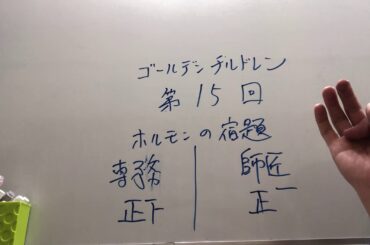 ゴールデンチルドレン
第15回
ホルモンの宿題
専務 師匠
正下 正一